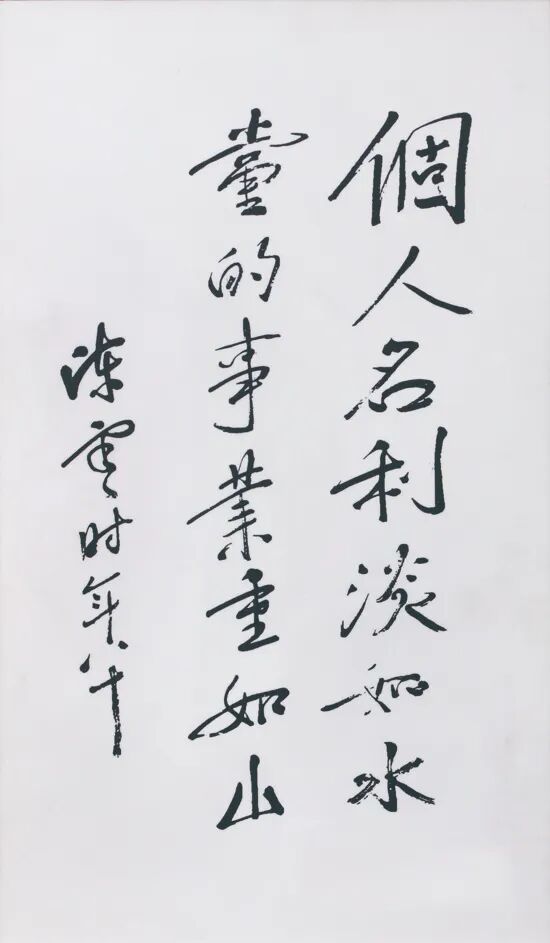 個人名利淡如水
黨的事業重如山
陈雲时年八十